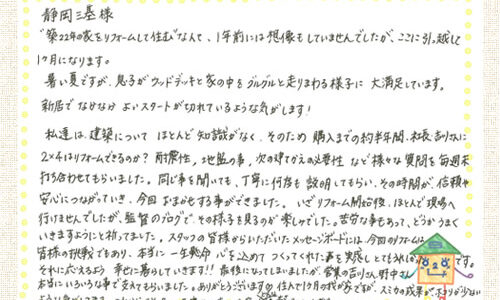 静岡三基様
"築22年の家をリフォームして住む"なんて、1年前には想像もしていませんでしたが、ここに引っ越して
1ヶ月になります。
暑い夏ですが、息子がウッドデッキと家の中をグルグルと走りまわる様子に大満足しています。
新居でなかなかよいスタートが切れているような気がします!
私達は、建築についてほとんど知識がなく、そのため購入までの約半年間、社長、吉川さんに
2×4はリフォームできるのか?耐震性。地盤の事。次の建てかえの必要性など様々な質問を毎週末
打ち合わせてもらいました。同じ事を聞いても、丁寧に何度も説明してもらい、その時間が、信頼や
安心につながっていき、今回おまかせする事ができました。いざリフォーム開始後、ほとんど現場へ
行けませんでしたが、監督のブログで、その様子を見るのが楽しみでした。苦労な事もあって、どうかうまく
いきますようにと祈ってました。スタッフの皆様からいただいたメッセージボードには、今回のリフォームは
皆様の挑戦でもあり、本当に一生懸命心を込めてつくってくれた事を実感しとてもうれし です。
それに応えるよう幸せに暮らしていきます!!最後になってしまいましたが、営業の吉川さん、野中さん
本当にいろいろな事で支えてもらいました。ありがとうございます 住んで1ヶ月の我が家ですが、スミカの成果が、